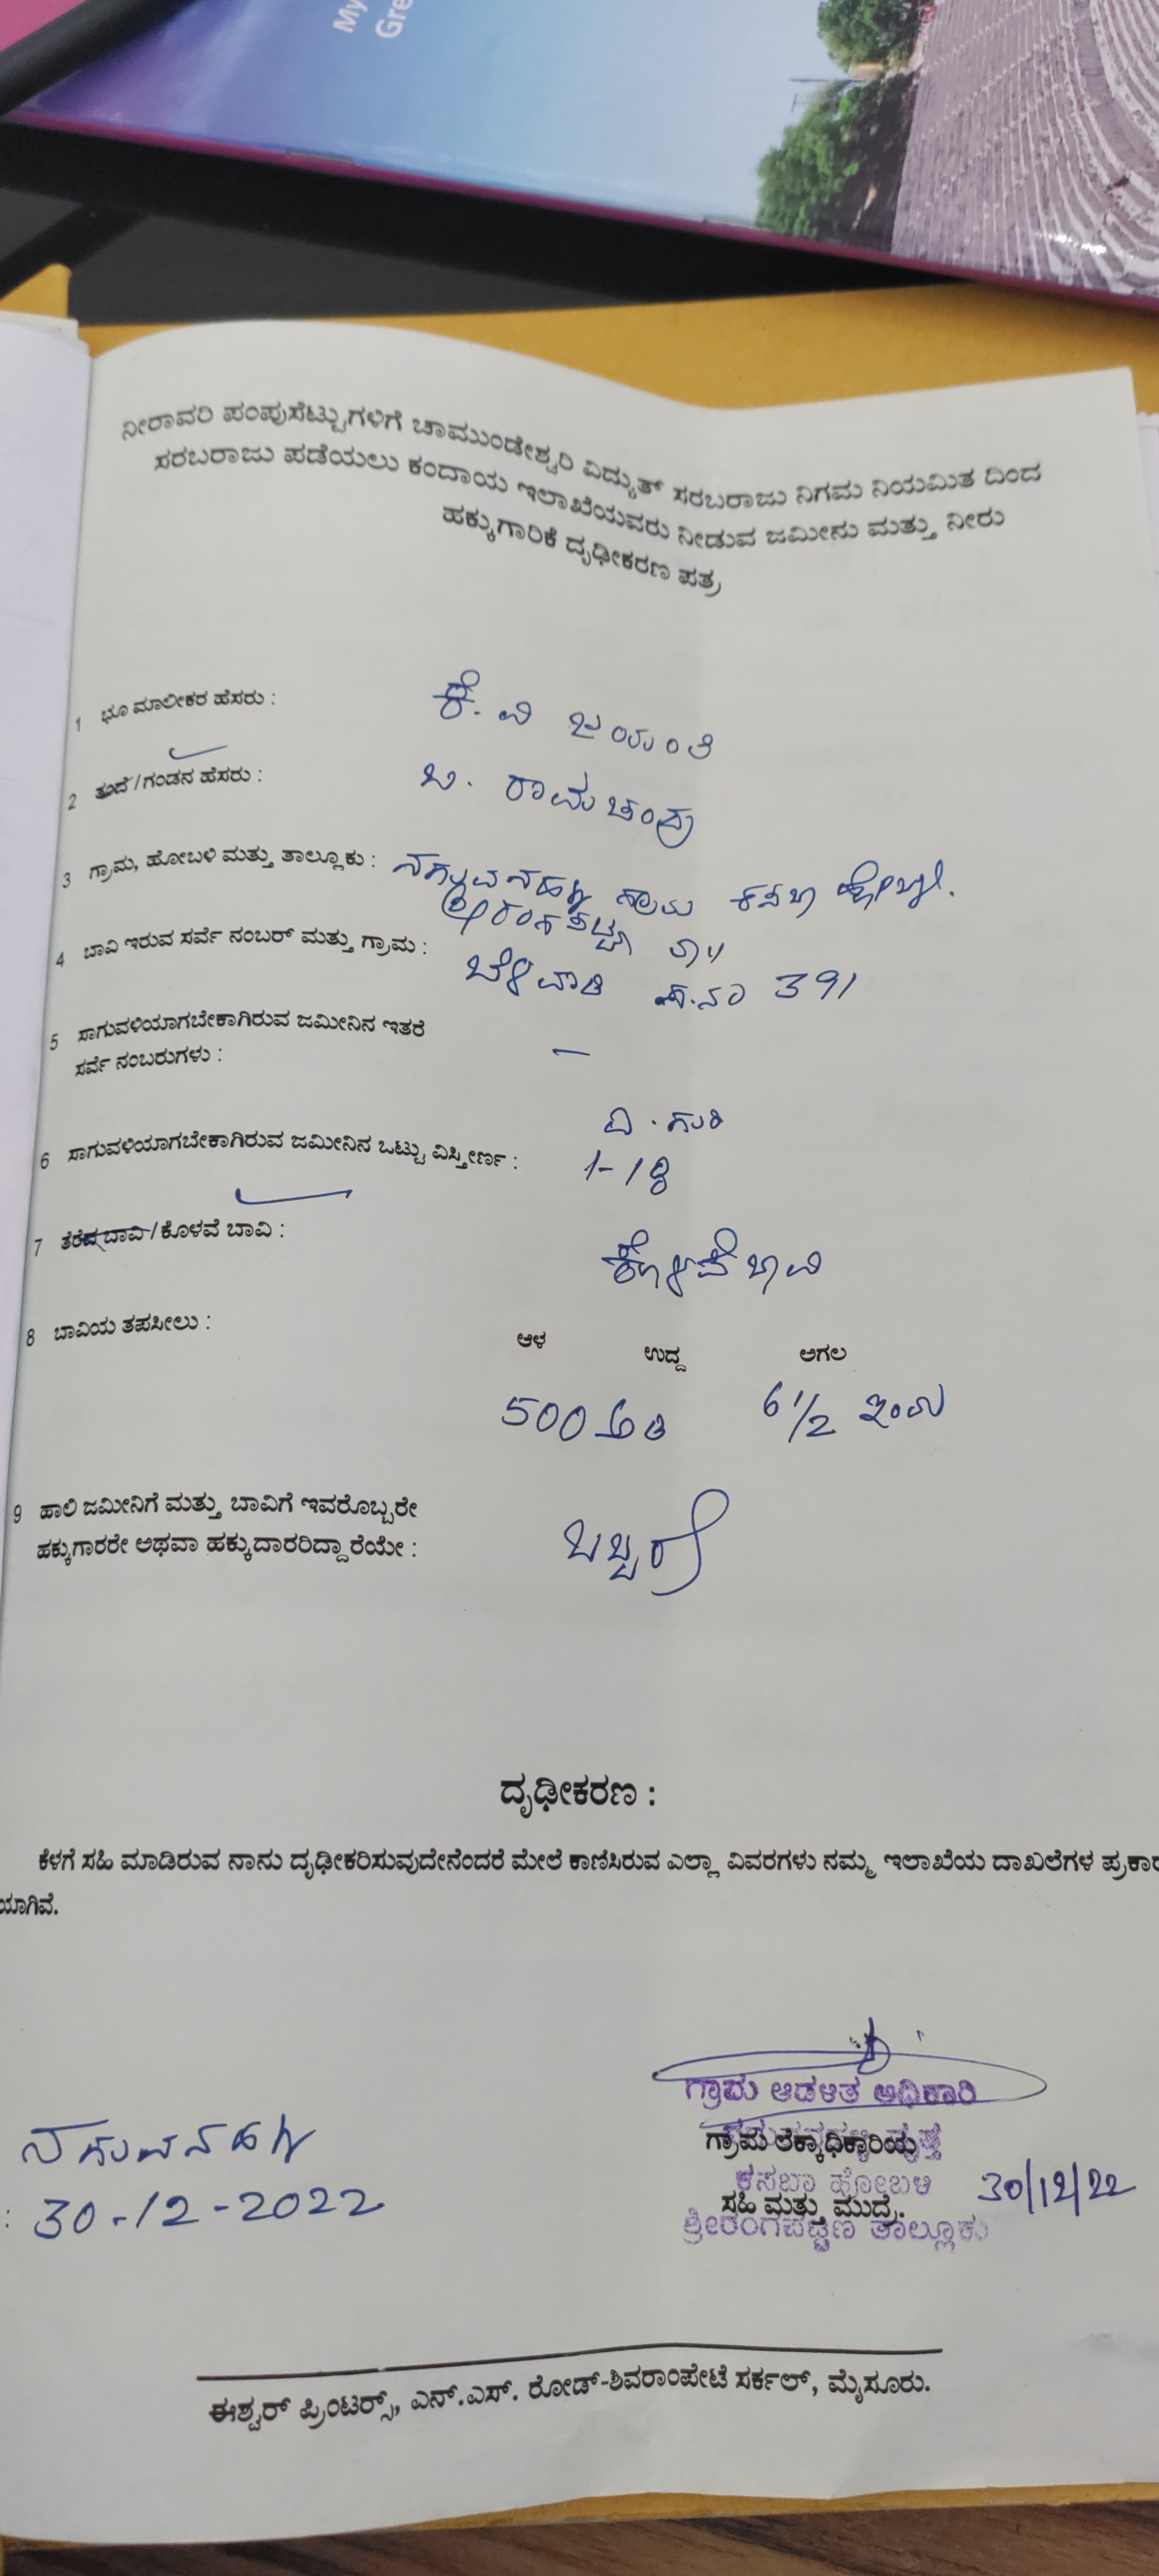 My
Gre
ನೀರಾವರಿ ಪಂಪುಸೆಟ್ಟುಗಳಿಗೆ ಚಾಮುಂಡೇಶ್ವರಿ ವಿದ್ಯುತ್ ಸರಬರಾಜು ನಿಗಮ ನಿಯಮಿತ ದಿಂದ
ಸರಬರಾಜು ಪಡೆಯಲು ಕಂದಾಯ ಇಲಾಖೆಯವರು ನೀಡುವ ಜಮೀನು ಮತ್ತು ನೀರು
ಹಕ್ಕುಗಾರಿಕೆ ದೃಢೀಕರಣ ಪತ್ರ
1 ಭೂ ಮಾಲೀಕರ ಹೆಸರು : ಕೆ. ವಿ ಜಯಂತಿ
2 ತಂದೆ/ಗಂಡನ ಹೆಸರು : ಬಿ. ರಾಮಚಂದ್ರ
3 ಗ್ರಾಮ, ಹೋಬಳಿ ಮತ್ತು ತಾಲ್ಲೂಕು : ನಗುವನಹಳ್ಳಿ ಗ್ರಾಮ ಕಸಬಾ ಹೋಬಳಿ.
ಶ್ರೀರಂಗಪಟ್ಟಣ ತಾ॥
4 ಬಾವಿ ಇರುವ ಸರ್ವೆ ನಂಬರ್ ಮತ್ತು ಗ್ರಾಮ : ಬೆಳವಾಡಿ ಸ.ನಂ 391
5 ಸಾಗುವಳಿಯಾಗಬೇಕಾಗಿರುವ ಜಮೀನಿನ ಇತರೆ
ಸರ್ವೆ ನಂಬರುಗಳು : —
ಎ . ಗುಂ
6 ಸಾಗುವಳಿಯಾಗಬೇಕಾಗಿರುವ ಜಮೀನಿನ ಒಟ್ಟು ವಿಸ್ತೀರ್ಣ : 1-18
7 ತೆರೆದ ಬಾವಿ/ಕೊಳವೆ ಬಾವಿ : ಕೊಳವೆ ಬಾವಿ
8 ಬಾವಿಯ ತಪಸೀಲು : ಆಳ ಉದ್ದ ಅಗಲ
500 ಅಡಿ 6 1/2 ಇಂಚು
9 ಹಾಲಿ ಜಮೀನಿಗೆ ಮತ್ತು ಬಾವಿಗೆ ಇವರೊಬ್ಬರೇ
ಹಕ್ಕುಗಾರರೇ ಅಥವಾ ಹಕ್ಕುದಾರರಿದ್ದಾರೆಯೇ : ಒಬ್ಬರೆ
ದೃಢೀಕರಣ :
ಕೆಳಗೆ ಸಹಿ ಮಾಡಿರುವ ನಾನು ದೃಢೀಕರಿಸುವುದೇನೆಂದರೆ ಮೇಲೆ ಕಾಣಿಸಿರುವ ಎಲ್ಲಾ ವಿವರಗಳು ನಮ್ಮ ಇಲಾಖೆಯ ದಾಖಲೆಗಳ ಪ್ರಕಾರ
ಯಾಗಿವೆ.
ಗ್ರಾಮ ಆಡಳಿತ ಅಧಿಕಾರಿ
ನಗುವನಹಳ್ಳಿ
ಗ್ರಾಮ ಲೆಕ್ಕಾಧಿಕಾರಿಯ
ಕಸಬಾ ಹೋಬಳಿ
: 30-12-2022
ಸಹಿ ಮತ್ತು ಮುದ್ರೆ. 30/12/22
ಶ್ರೀರಂಗಪಟ್ಟಣ ತಾಲ್ಲೂಕು
ಈಶ್ವರ್ ಪ್ರಿಂಟರ್ಸ್, ಎನ್.ಎಸ್. ರೋಡ್-ಶಿವರಾಂಪೇಟೆ ಸರ್ಕಲ್, ಮೈಸೂರು.